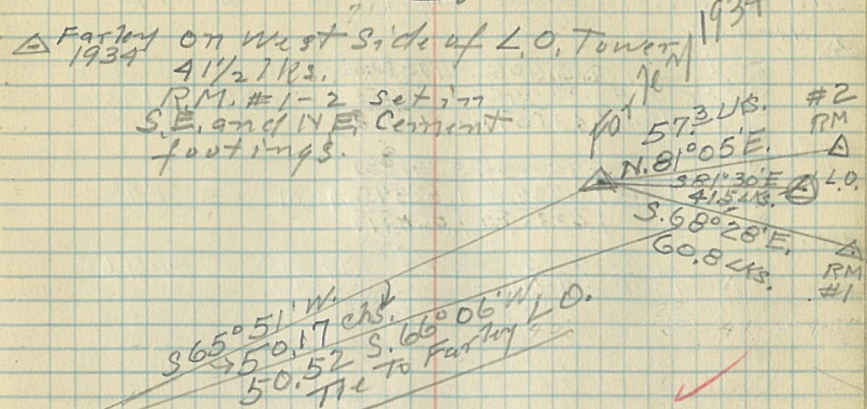 △ Farley on west side of L.O. Tower
1934
41½ lks.
R.M. #1-2 set in
S.E. and N.E. Cement
footings.
Farley 1934
57.3 LKS. #2
RM
N.81°05'E.
S81°30'E L.O.
41.5 LKS.
S.68°28'E.
60.8 LKS.
RM
#1
S65°51'W.
50.17 chs.
50.52 S.66°06'W L.O.
Tie To Farley